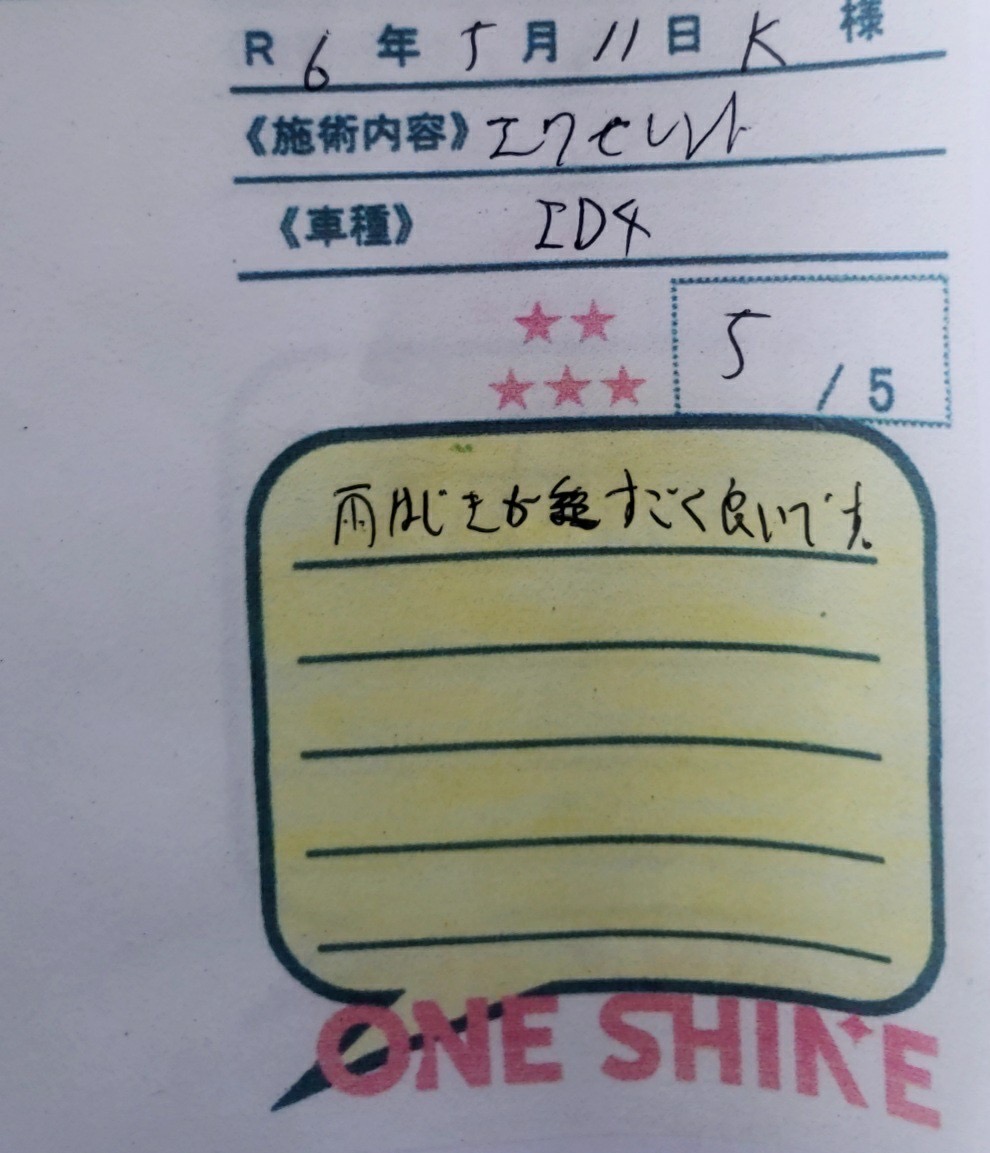 R 6 年 5 月 11 日 K 様
《施術内容》エクセレント
《車種》 ID4
5 / 5
雨はじきがすごく良いです。
ONE SHINE